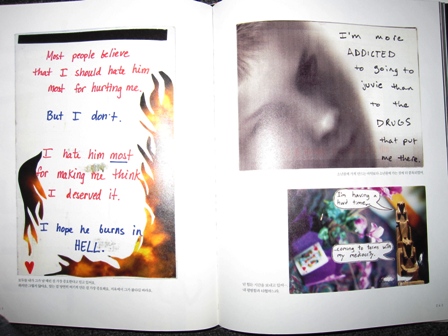 Most people believe
that I should hate him
most for hurting me.
But I don't.
I hate him most
for making me think
I deserved it.
I hope he burns in
HELL.
I'm more
ADDICTED
to going to
juvie than
to the
DRUGS
that put
me there.
I'm having a
hard time
coming to terms
with my
mediocrity.